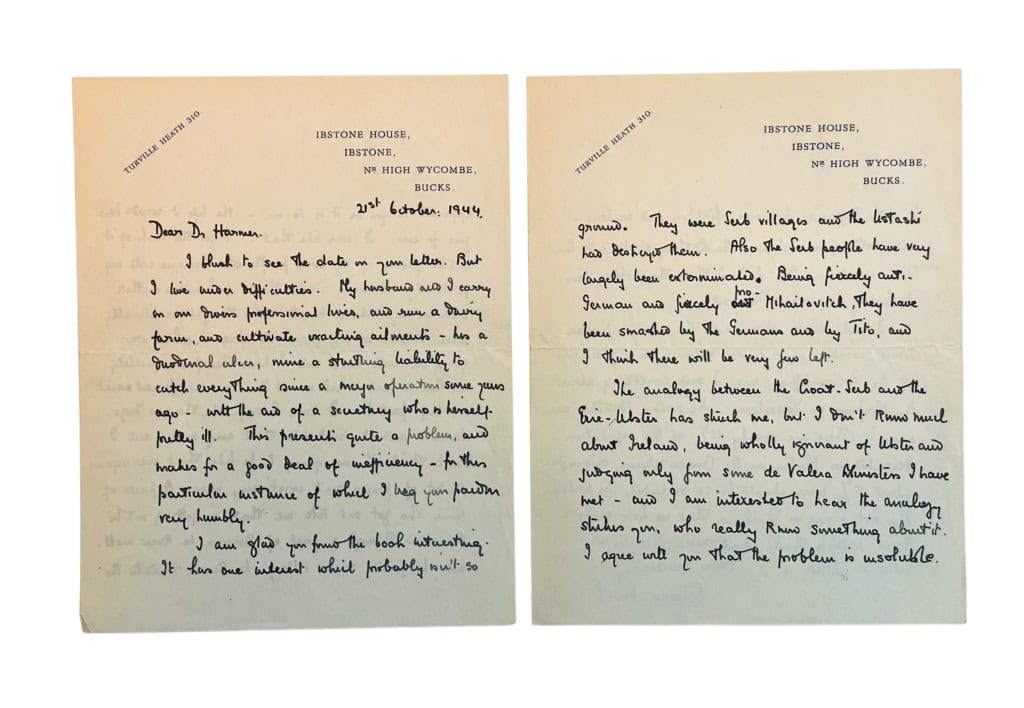 TURVILLE HEATH 310.
IBSTONE HOUSE,
IBSTONE,
NR HIGH WYCOMBE,
BUCKS.
21st October: 1944.
Dear Dr Harmer.
I blush to see the date on your letter. But
I live under difficulties. My husband and I carry
on our divers professional lives, and run a dairy
farm, and cultivate exacting ailments - his a
duodenal ulcer, mine a startling liability to
catch everything since a major operation some years
ago - with the aid of a secretary who is herself
pretty ill. This presents quite a problem, and
makes for a good deal of inefficiency - for this
particular instance of which I beg your pardon
very humbly.
I am glad you found the book interesting.
It has one interest which probably isn't so
TURVILLE HEATH 310.
IBSTONE HOUSE,
IBSTONE,
NR HIGH WYCOMBE,
BUCKS.
ground. They were Serb villages and the Ustashi
had destroyed them. Also the Serb people have very
largely been exterminated. Being fiercely anti-
German and fiercely pro- Mihailovitch, they have
been smashed by the Germans and by Tito, and
I think there will be very few left.
The analogy between the Croat-Serb and the
Eire-Ulster has struck me, but I don't know much
about Ireland, being wholly ignorant of Ulster and
judging only from some de Valera Ministers I have
met - and I am interested to hear the analogy
strikes you, who really know something about it.
I agree with you that the problem is insoluble.